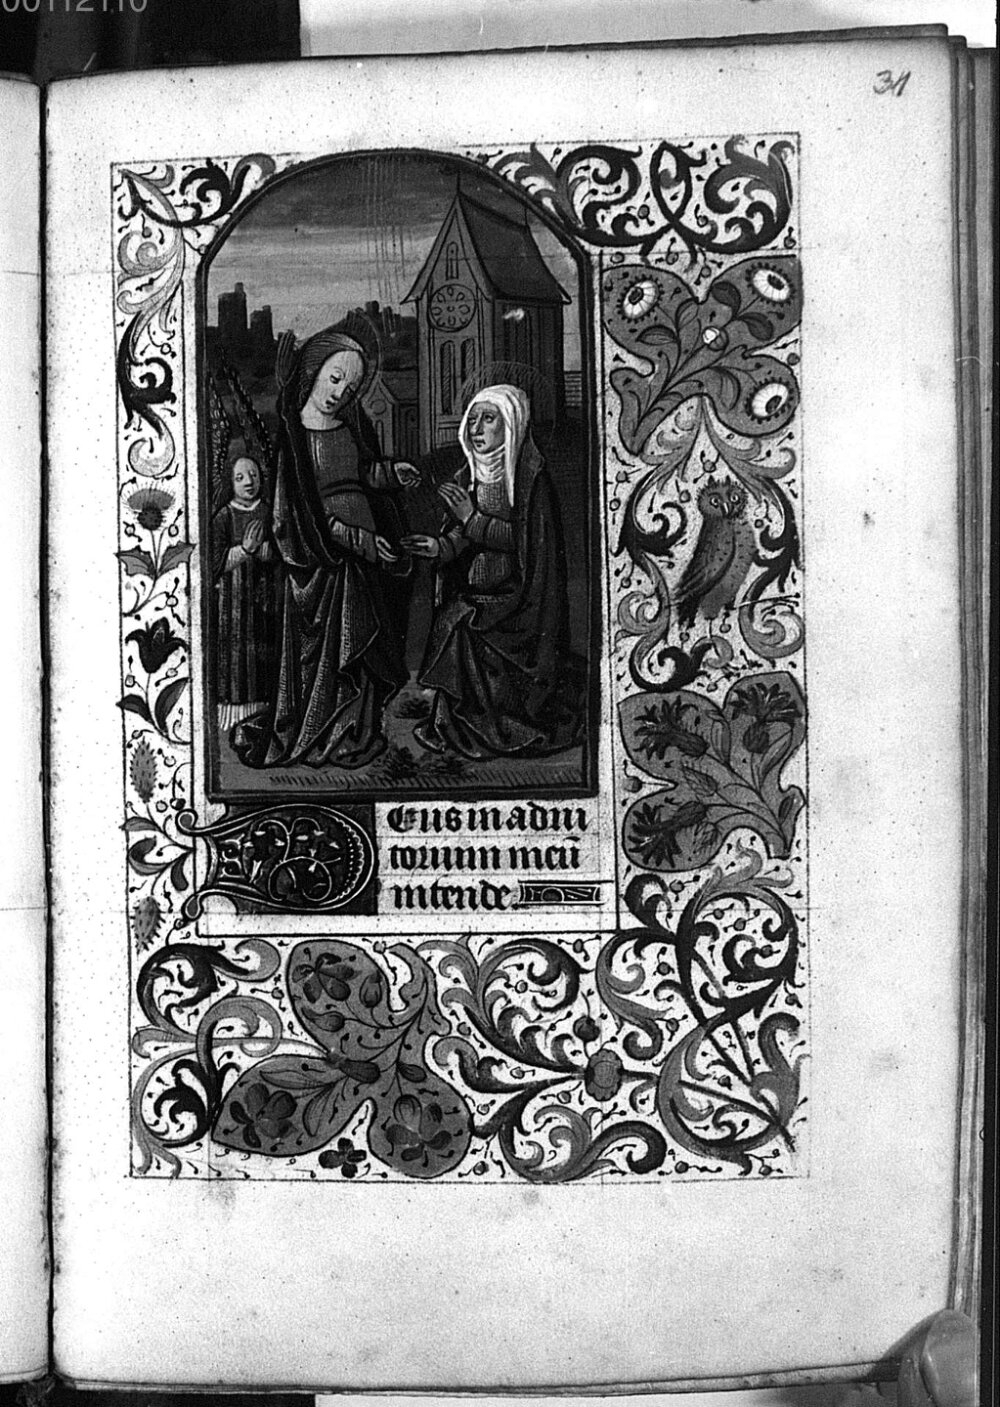 00112110
31
Deus in adiu
torium meū
intende.